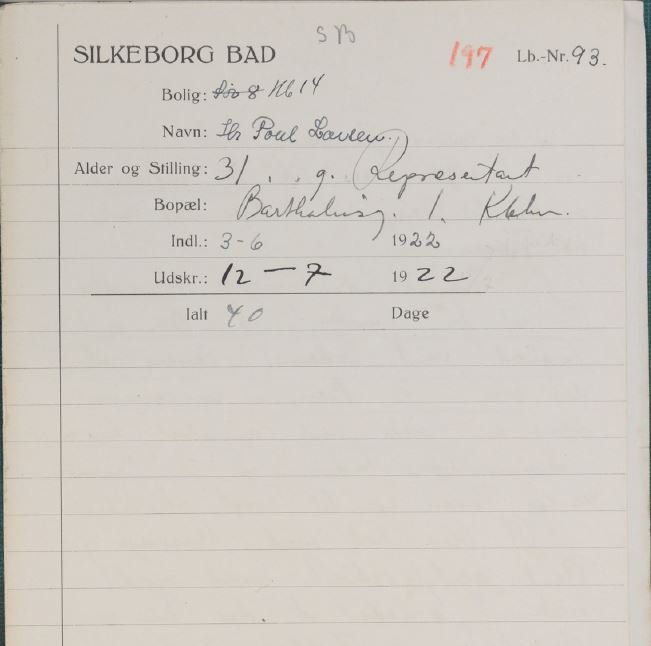 SB
SILKEBORG BAD 197 Lb.-Nr. 93.
Bolig: No 14
Navn: Hr Poul Laursen.
Alder og Stilling: 31 . . g. Repræsentant
Bopæl: 1. Kbhn.
Indl.: 3-6 1922
Udskr.: 12 — 7 1922
Ialt 40 Dage